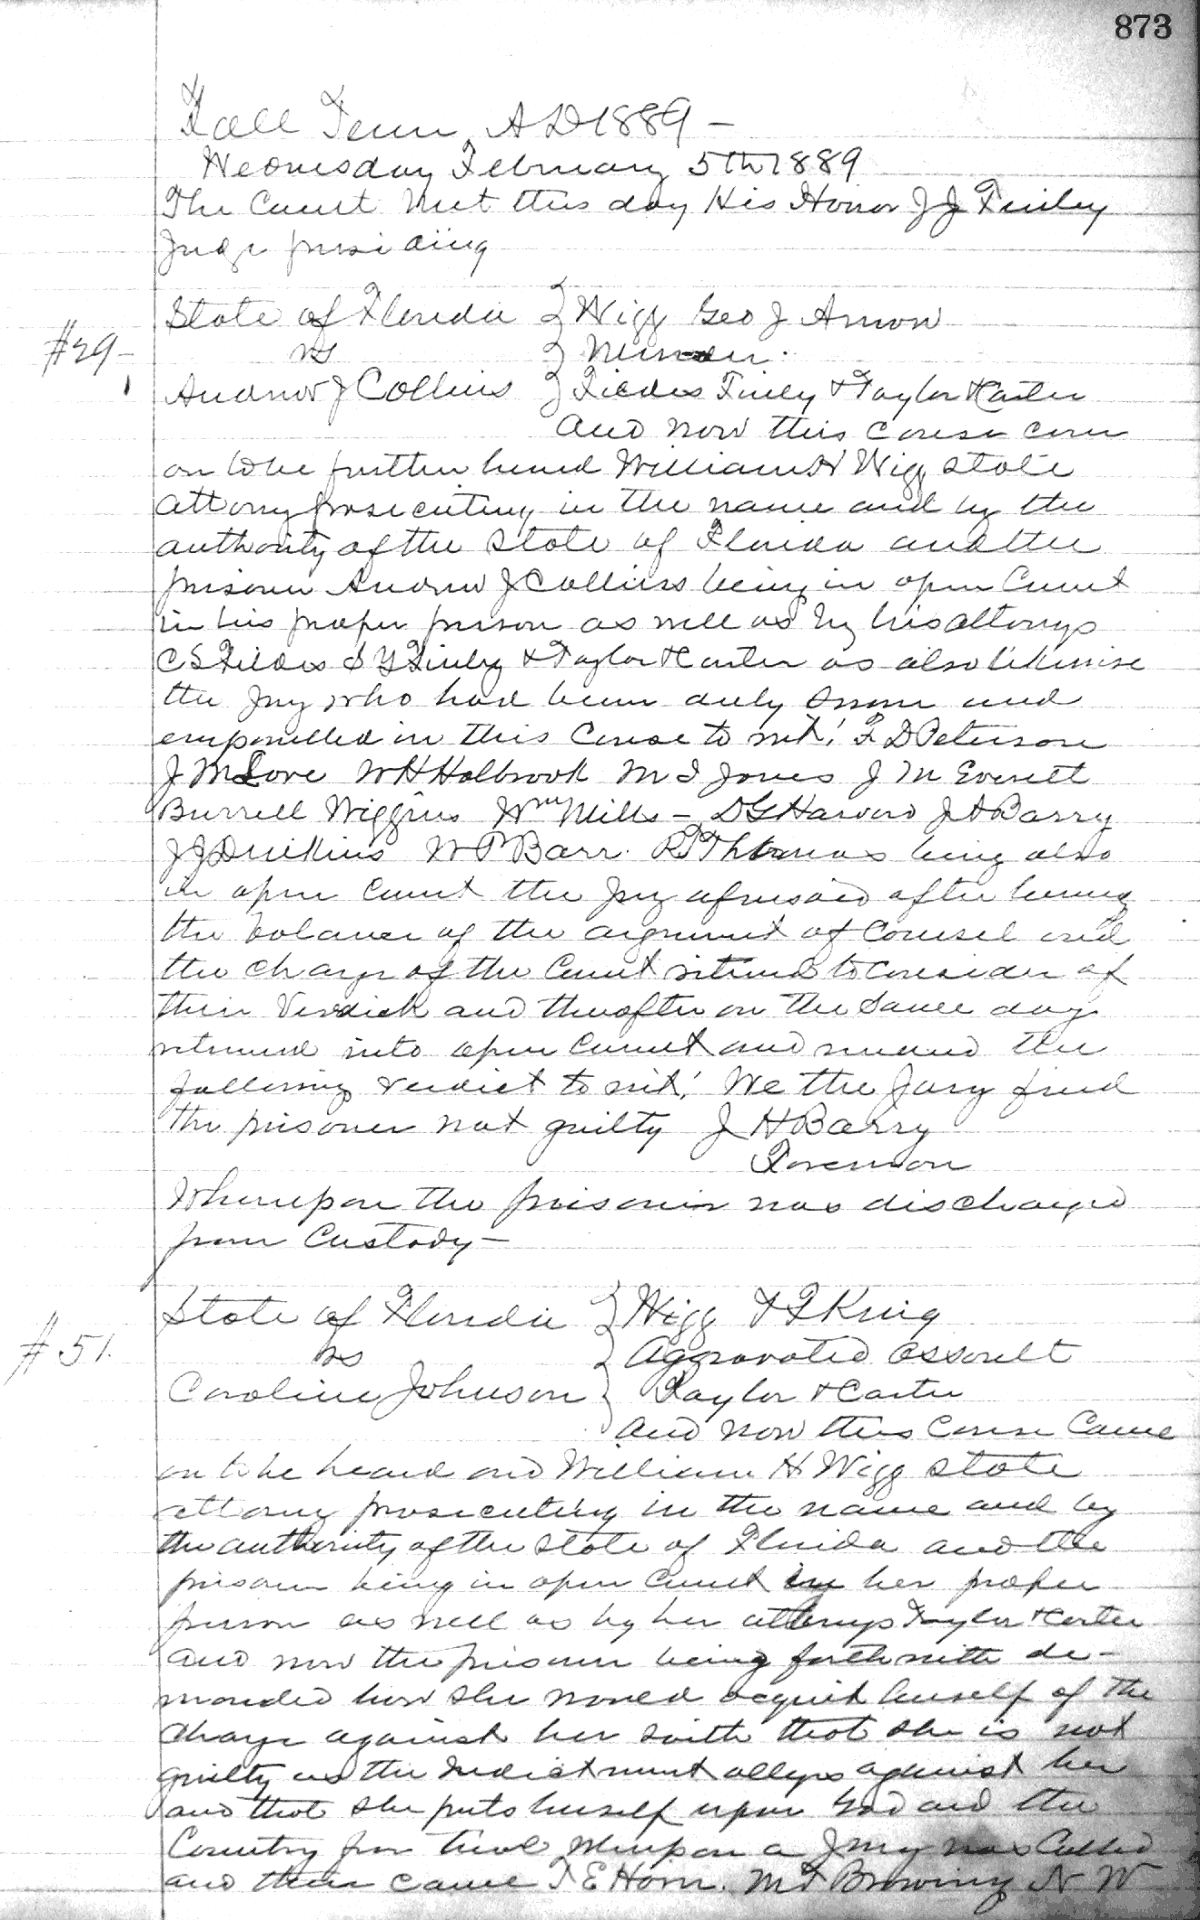 873
Fall Term, A D 1889 -
Wednesday February 5th 1889
The Court Met this day His Honor J J Finley
Judge presiding
State of Florida } Wigg Geo J Arnow
#29 - vs } Murder.
Andrew J Collins } Fildes Finley & Taylor & Carter
And now this cause came
on to be further heard William H Wigg state
attorny prosecuting in the name and by the
authority of the State of Florida and the
prisoner Andrew J Collins being in open Court
in his proper person as well as by his attorneys
C S Fildes S Y Finley & Taylor & Carter as also likewise
the Jury who had been duly sworn and
empanelled in this Cause to wit; F D Peterson
J M Love W H Holbrook M I Jones J M Everett
Burrell Wiggins Wm Mills - D G Harvard J H Barry
J J Dinkins W P Barr. R T Thomas being also
in open Court the Jury aforesaid after hearing
the balance of the argument of Counsel and
the charge of the Court retired to consider of
their Verdick and thereafter on the Same day
returned into open Court and rendered the
following verdict to wit; We the Jury find
the prisoner not guilty J H Barry
Foreman
Whereupon the prisoner was discharged
from Custody -
State of Florida } Wigg & King
#51. vs } Aggravated Assault
Caroline Johnson } Taylor & Carter
And now this Cause Came
on to be heard and William H Wigg state
attorny prosecuting in the name and by
the authority of the State of Florida and the
prisoner being in open Court in her proper
person as well as by her attorneys Taylor & Carter
and now the prisoner being forthwith de-
manded how she would acquit herself of the
charge against her saith that she is not
guilty as the Indictment alleges against her
and that she puts herself upon God and the
Country for trial Whereupon a Jury was Called
and there came T E Horn. M F Browning N W